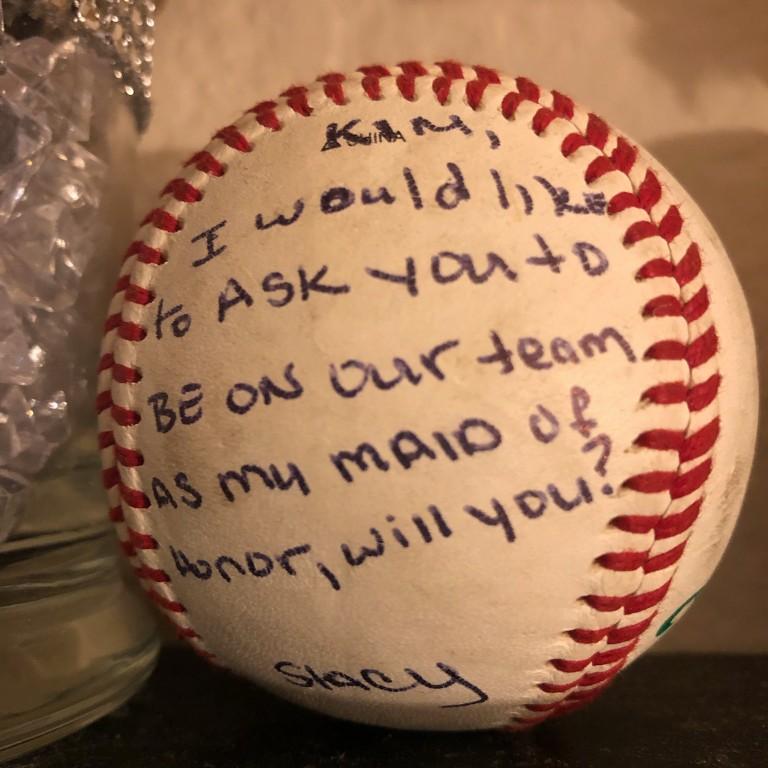 KIM,
CHINA
I would like
to ASK you to
BE ON our team
AS my MAID of
Honor, will you?
Stacy